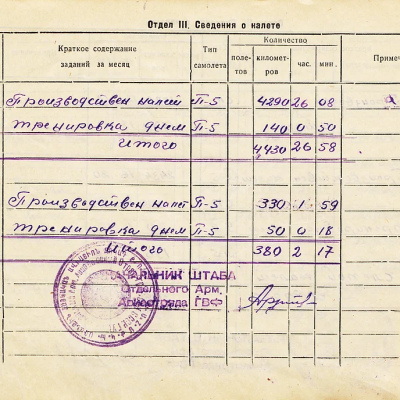 Отдел III. Сведения о налете
Краткое содержание заданий за месяц
Тип самолета
Количество
полетов
километров
час.
мин.
Примеч
Производствен налет П-5 4290 26 08
Тренировка днем П-5 140 0 50
Итого 4430 26 58
Производствен налет П-5 330 1 59
Тренировка днем П-5 50 0 18
Итого 380 2 17
НАЧАЛЬНИК ШТАБА
Отдельного Арм.
Авиаотряда ГВФ